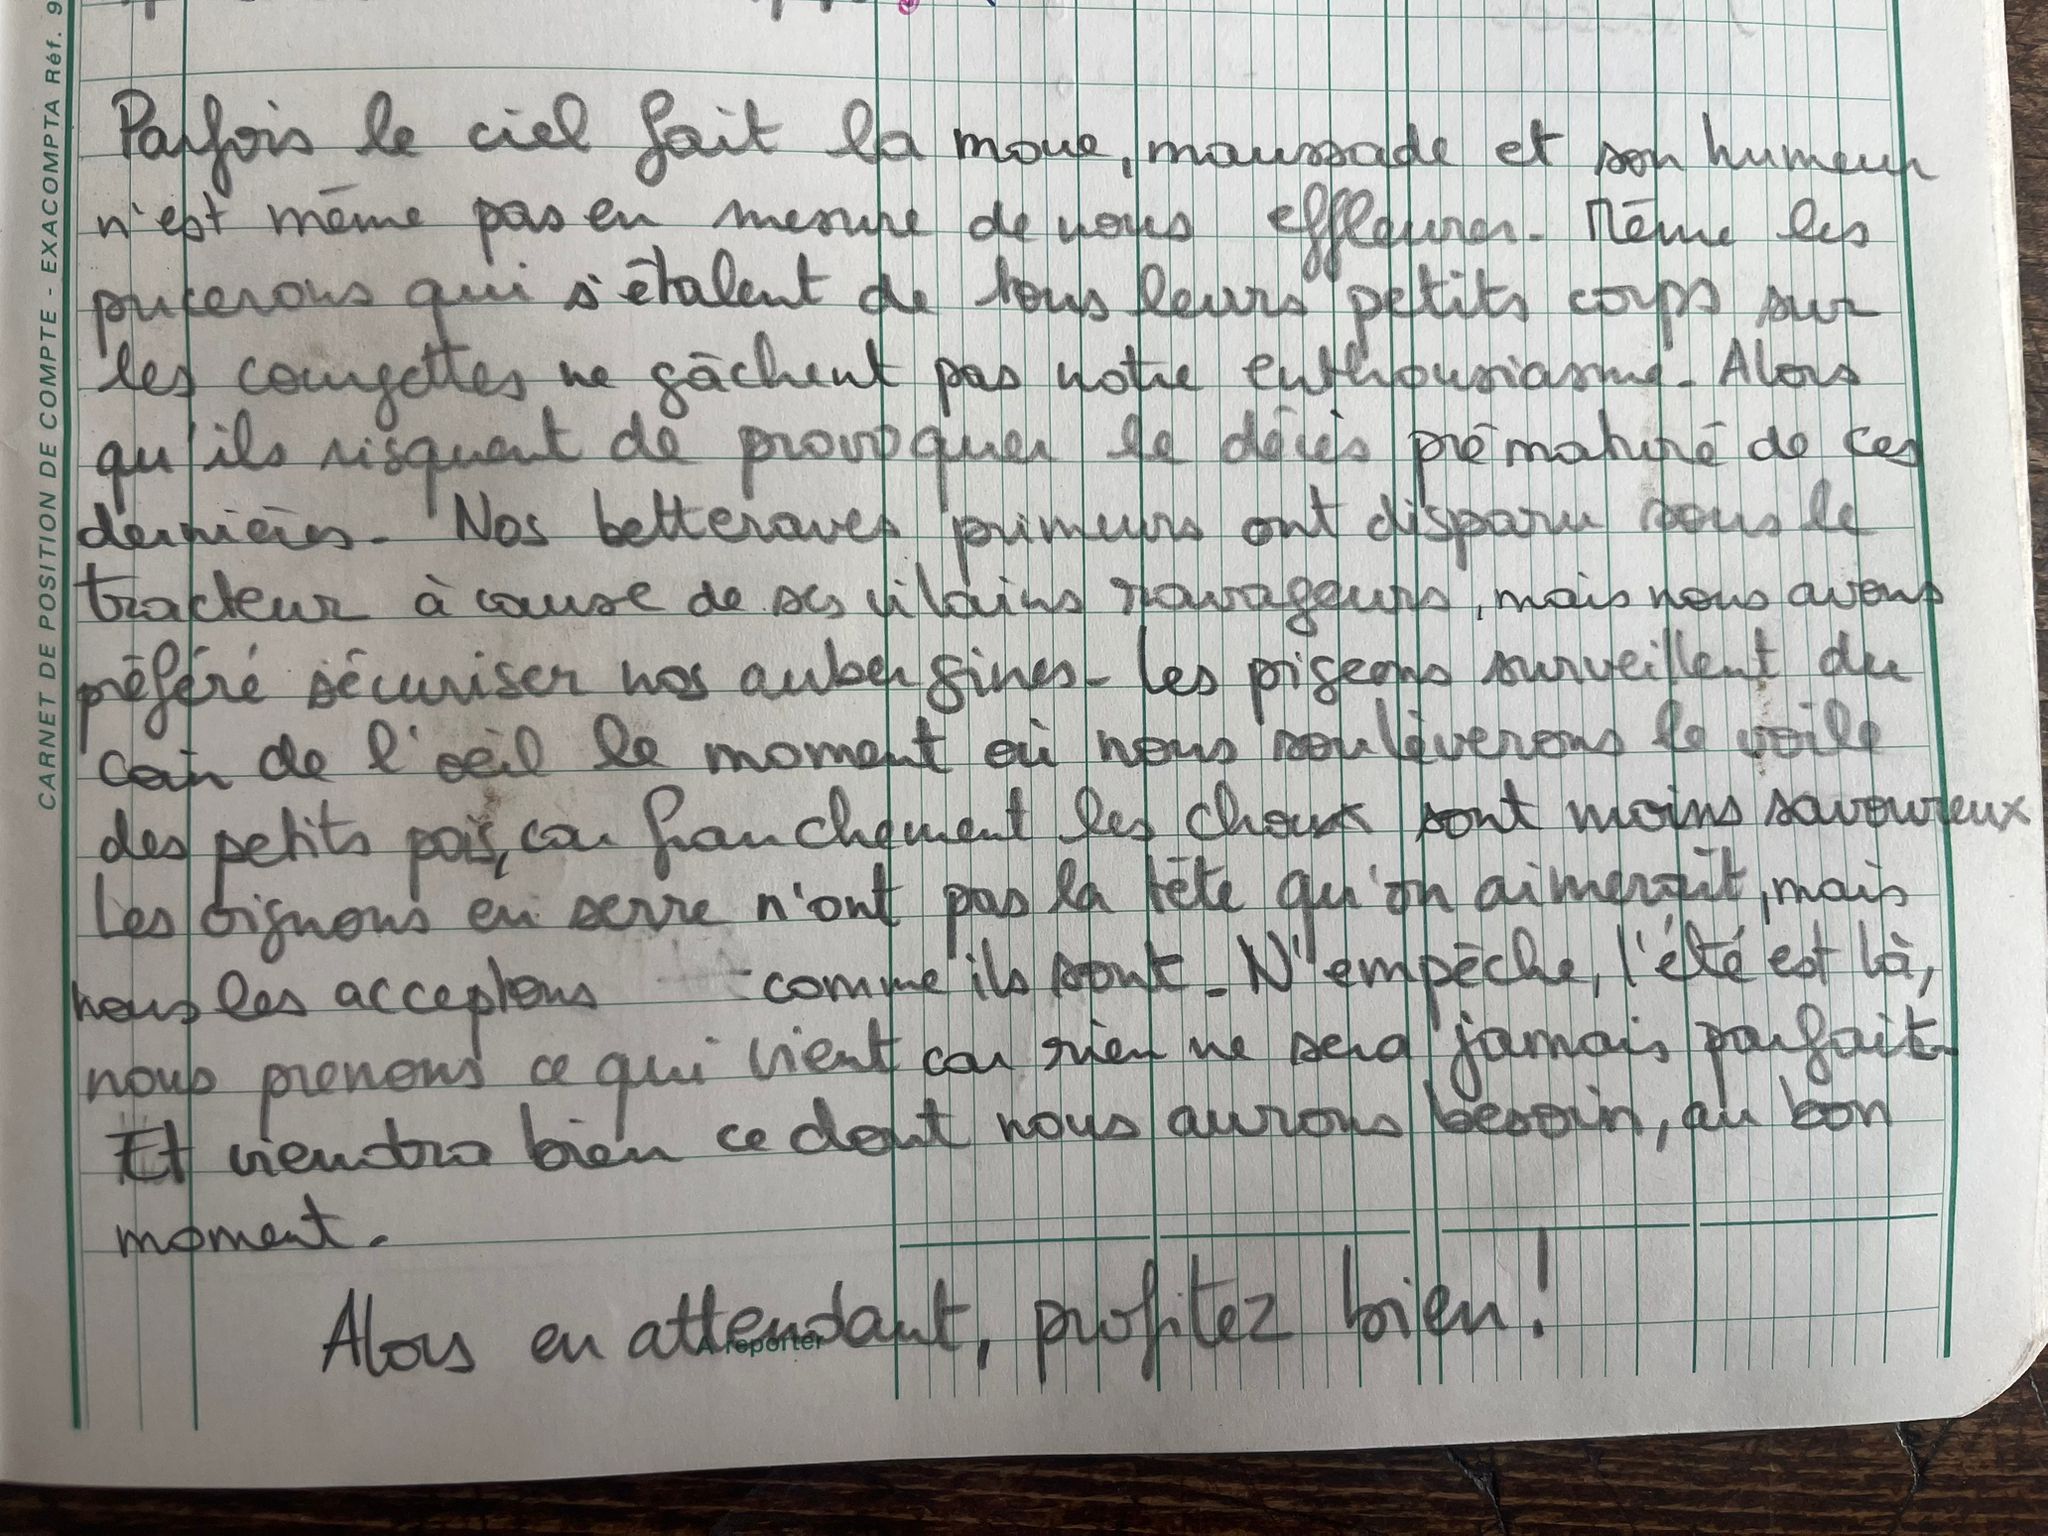 CARNET DE POSITION DE COMPTE - EXACOMPTA Réf. 9
Parfois le ciel fait la moue, maussade et son humeur
n'est même pas en mesure de nous effleurer. Même les
pucerons qui s'étalent de tous leurs petits corps sur
les courgettes ne gâchent pas notre enthousiasme. Alors
qu'ils risquent de provoquer le décès prématuré de ces
dernières. Nos betteraves primeurs ont disparu sous le
tracteur à cause de ses vilains ravageurs, mais nous avons
préféré sécuriser nos aubergines. Les pigeons surveillent du
coin de l'oeil le moment où nous soulèverons le voile
des petits pois, car franchement les choux sont moins savoureux
Les oignons en serre n'ont pas la tête qu'on aimerait, mais
nous les acceptons comme ils sont. N'empêche, l'été est là,
nous prenons ce qui vient car rien ne sera jamais parfait.
Et viendra bien ce dont nous aurons besoin, au bon
moment.
Alors en attendant, profitez bien !
A reporter